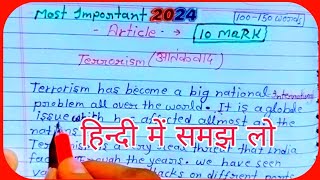 Most Important 2024
100-150 words
- Article → 10 MARK
Terrorism (आतंकवाद)
Terrorism has become a big national International
problem all over the world. It is a globle
issue which has affected allmost all the
nations.
हिन्दी में समझ लो
Terrorism is a very clear threat that India
through the years. we have seen
attacks on different parts